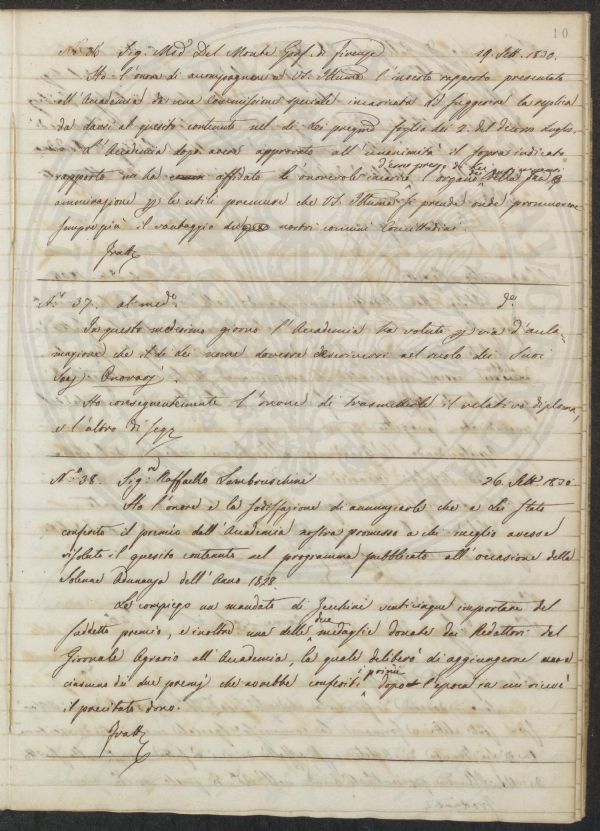 10
N.º 36 Sig.r Med.º Del Monte Gonf. di Firenze 19. Sett. 1830.
Ho l'onore di accompagnare a VS. Illuma l'inserto rapporto presentato
all'Accademia da una Commissione speciale incaricata di suggerire la replica
da darsi al quesito contenuto nel di Lei pregiato foglio dei 2. del decorso Luglio.
L'Accademia dopo avere approvato all'unanimità il sopra indicato
rapporto mi ha affidato l'onorevole incarico
ammirazione per le utili premure che VS. Illuma si prende onde promuovere
sempre più il vantaggio dei nostri comuni Concittadini.
Fratt.
N.º 37. al med.º d.º
In questo medesimo giorno l'Accademia ha voluto per via d'accla-
mazione che il di Lei nome dovesse descriversi nel ruolo dei Suoi
Socj Onorarj.
Ho conseguentemente l'onore di trasmetterle il relativo diploma,
e l'altro di segg
N.º 38. Sig.r Raffaello Lambruschini 26. Sett. 1830.
Ho l'onore e la sodisfazione di annunziarle che a Lei è stato
conferito il premio dall'Accademia nostra promesso a chi meglio avesse
risoluto il quesito contenuto nel programma pubblicato all'occasione della
Solenne Adunanza dell'Anno 1828.
Le compiego un mandato di Zecchini venticinque importare del
suddetto premio, e inoltre una delle due medaglie donate dai Redattori del
Giornale Agrario all'Accademia, la quale deliberò di aggiungerne una a
ciascuno dei due premj che avrebbe conferiti i primi dopo l'epoca in cui ricevè
il precitato dono.
Fratt.